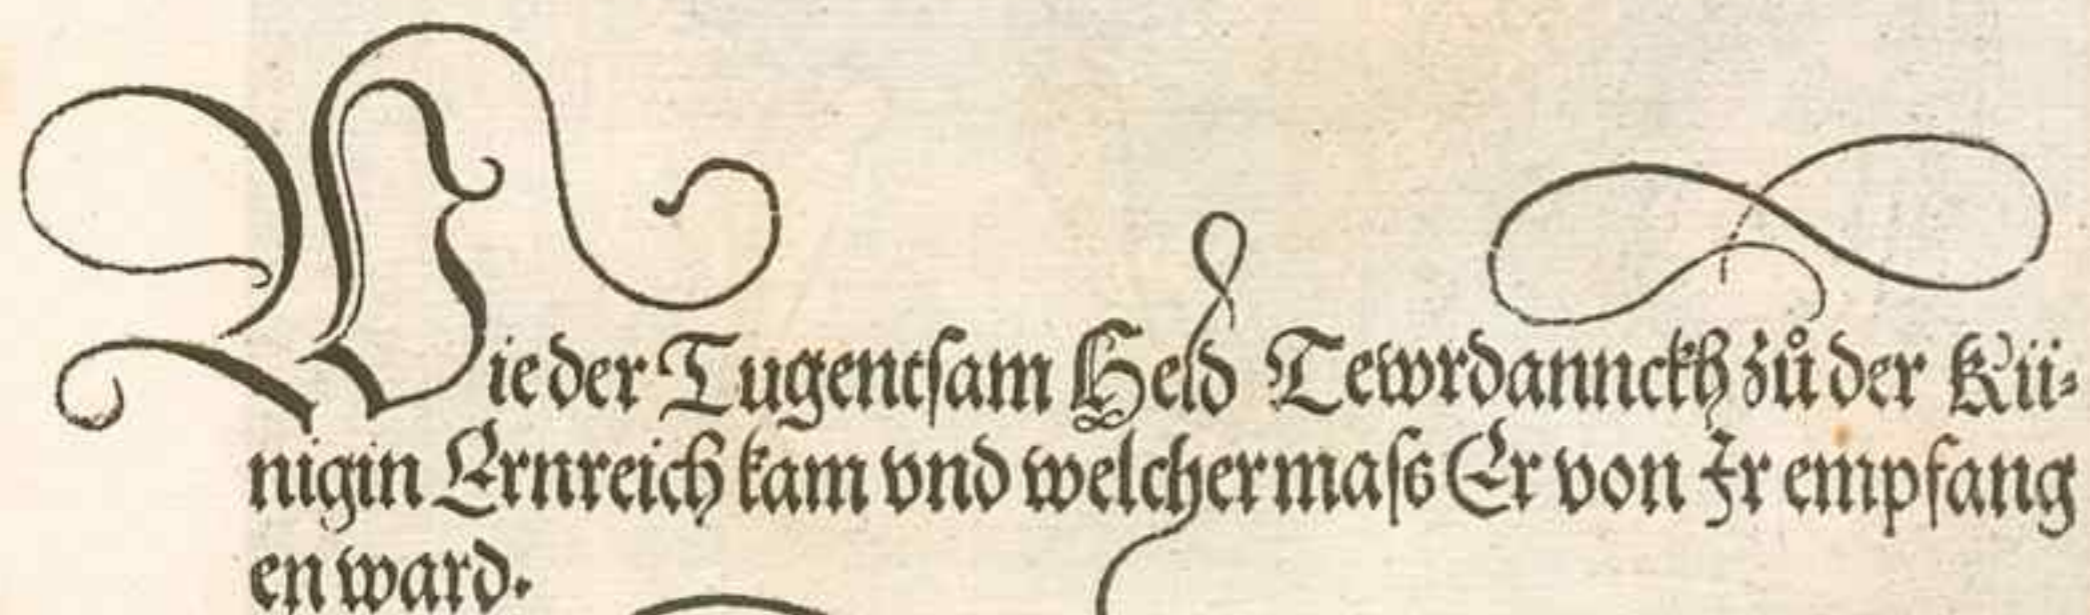 Wie der Tugentsam Held Tewrdannckh zů der Kü⸗
nigin Ernreich kam vnd welchermaſs Er von Ir empfang
en ward.